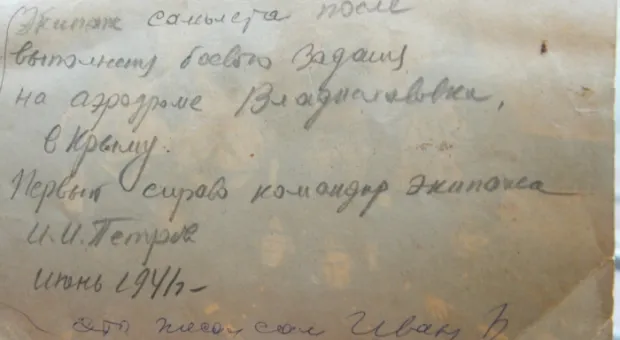 Экипаж самолета после
выполнения боевого задания
на аэродроме Владиславовка,
в Крыму.
Первый справо командир экипажа
И.И. Петров
июнь 1941г-
это писал сам Иван